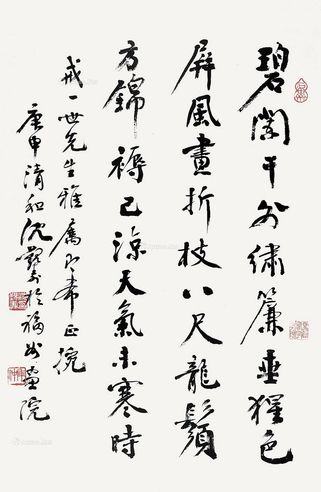 碧闌干外繡簾垂猩色
屏風畫折枝八尺龍鬚
方錦褥已涼天氣未寒時
戒一世先生雅屬即希正捥
庚申清和沈覲壽於福州畫院